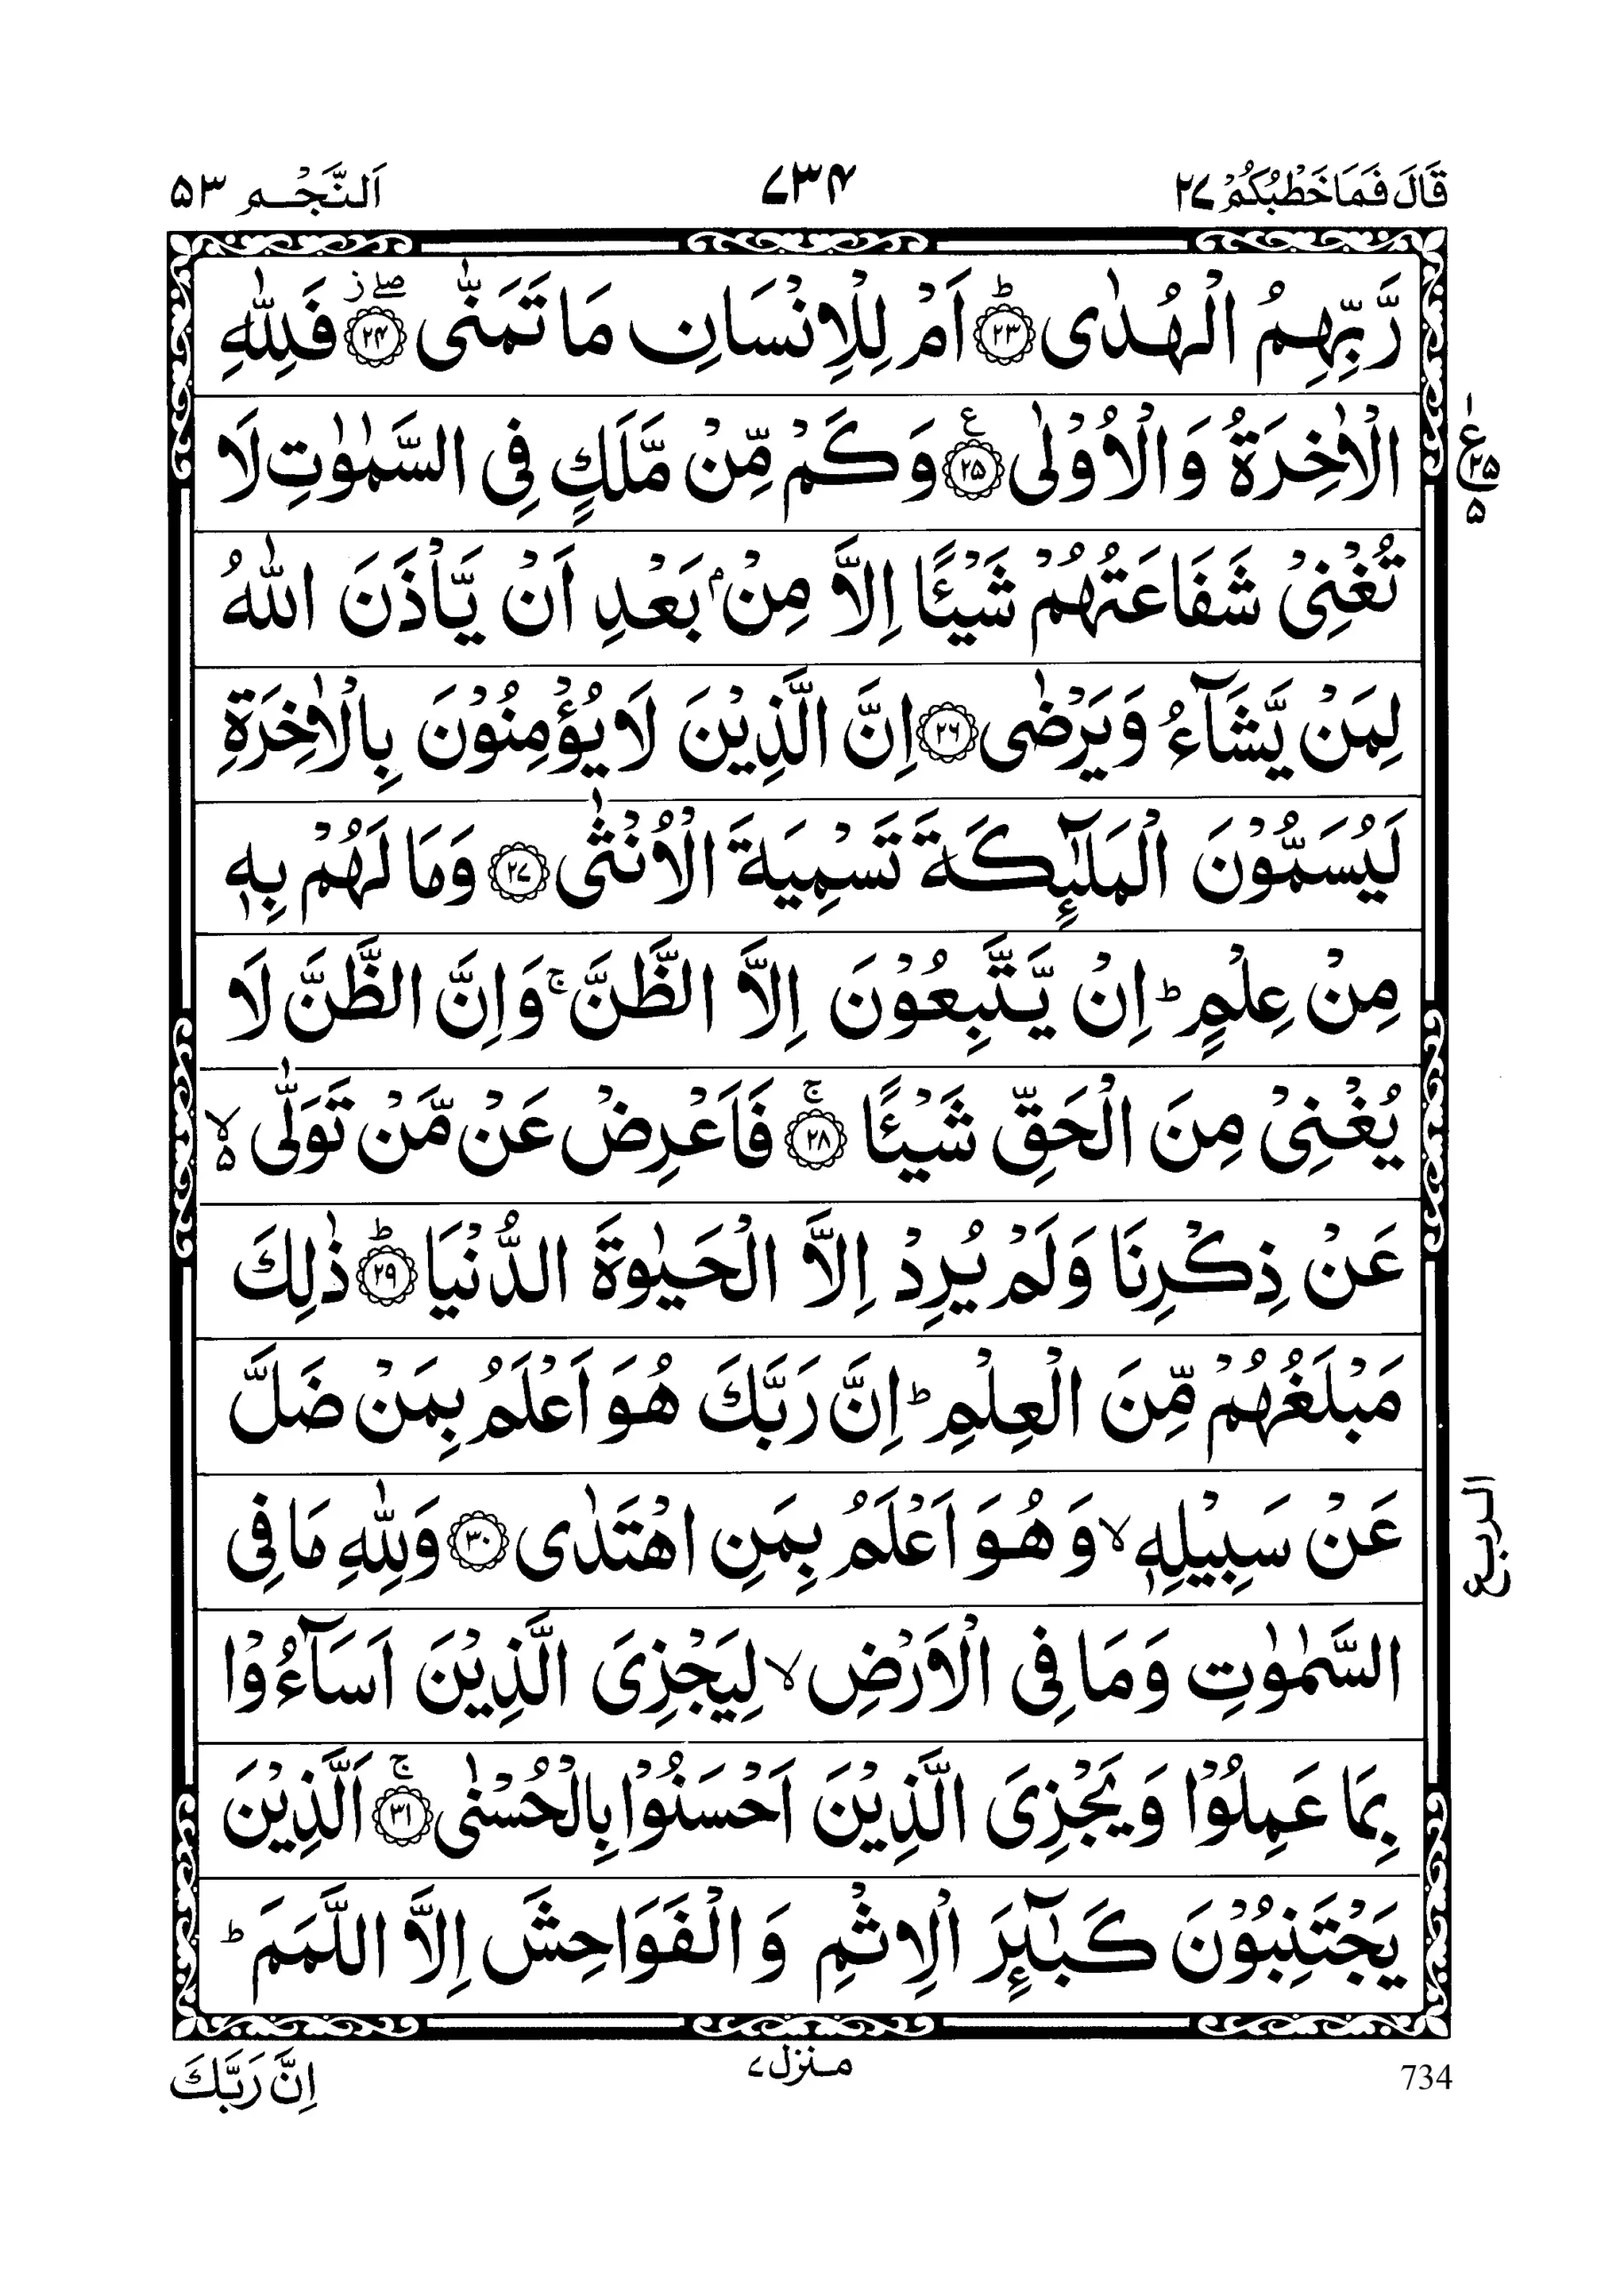 قَالَ فَمَا خَطْبُكُمْ ٢٧ ٧٣٤ اَلنَّجْم ٥٣
رَّبِّهِمُ الْهُدٰى ﴿٢٣﴾ؕ اَمْ لِلْاِنْسَانِ مَا تَمَنّٰى ﴿٢٤﴾ۖز فَلِلّٰهِ
الْاٰخِرَةُ وَالْاُوْلٰى ﴿٢٥﴾ع وَكَمْ مِّنْ مَّلَكٍ فِى السَّمٰوٰتِ لَا
ع ٢٥ ٥
تُغْنِىْ شَفَاعَتُهُمْ شَيْـًٔا اِلَّا مِنْۢ بَعْدِ اَنْ يَّاْذَنَ اللّٰهُ
لِمَنْ يَّشَآءُ وَيَرْضٰى ﴿٢٦﴾ اِنَّ الَّذِيْنَ لَا يُؤْمِنُوْنَ بِالْاٰخِرَةِ
لَيُسَمُّوْنَ الْمَلٰٓئِكَةَ تَسْمِيَةَ الْاُنْثٰى ﴿٢٧﴾ وَمَا لَهُمْ بِهٖ
مِنْ عِلْمٍ ؕ اِنْ يَّتَّبِعُوْنَ اِلَّا الظَّنَّ ۚ وَاِنَّ الظَّنَّ لَا
يُغْنِىْ مِنَ الْحَقِّ شَيْـًٔا ﴿٢٨﴾ۚ فَاَعْرِضْ عَنْ مَّنْ تَوَلّٰى ۙ٥
عَنْ ذِكْرِنَا وَلَمْ يُرِدْ اِلَّا الْحَيٰوةَ الدُّنْيَا ﴿٢٩﴾ؕ ذٰلِكَ
مَبْلَغُهُمْ مِّنَ الْعِلْمِ ؕ اِنَّ رَبَّكَ هُوَ اَعْلَمُ بِمَنْ ضَلَّ
عَنْ سَبِيْلِهٖ ۙ وَهُوَ اَعْلَمُ بِمَنِ اهْتَدٰى ﴿٣٠﴾ وَلِلّٰهِ مَا فِى
الربع
السَّمٰوٰتِ وَمَا فِى الْاَرْضِ ۙ لِيَجْزِىَ الَّذِيْنَ اَسَآءُوْا
بِمَا عَمِلُوْا وَيَجْزِىَ الَّذِيْنَ اَحْسَنُوْا بِالْحُسْنٰى ﴿٣١﴾ۚ اَلَّذِيْنَ
يَجْتَنِبُوْنَ كَبٰٓئِرَ الْاِثْمِ وَالْفَوَاحِشَ اِلَّا اللَّمَمَ ؕ
734 منزل ٧ اِنَّ رَبَّكَ